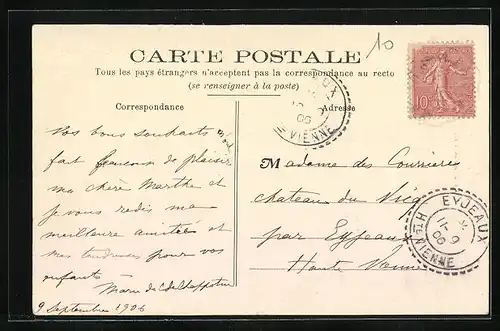 10
CARTE POSTALE
Tous les pays étrangers n'acceptent pas la correspondance au recto
(se renseigner à la poste)
Correspondance
Adresse
Vos bons souhaits m'ont
fait beaucoup de plaisir
ma chère Marthe et
je vous redis ma
meilleure amitié et
mes tendresses pour vos
enfants
Marie de
9 Septembre 1906
Madame des Courrières
chateau du
par Eyjeaux
Haute Vienne
10
06
VIENNE
EYJEAUX
9
06
HTE VIENNE